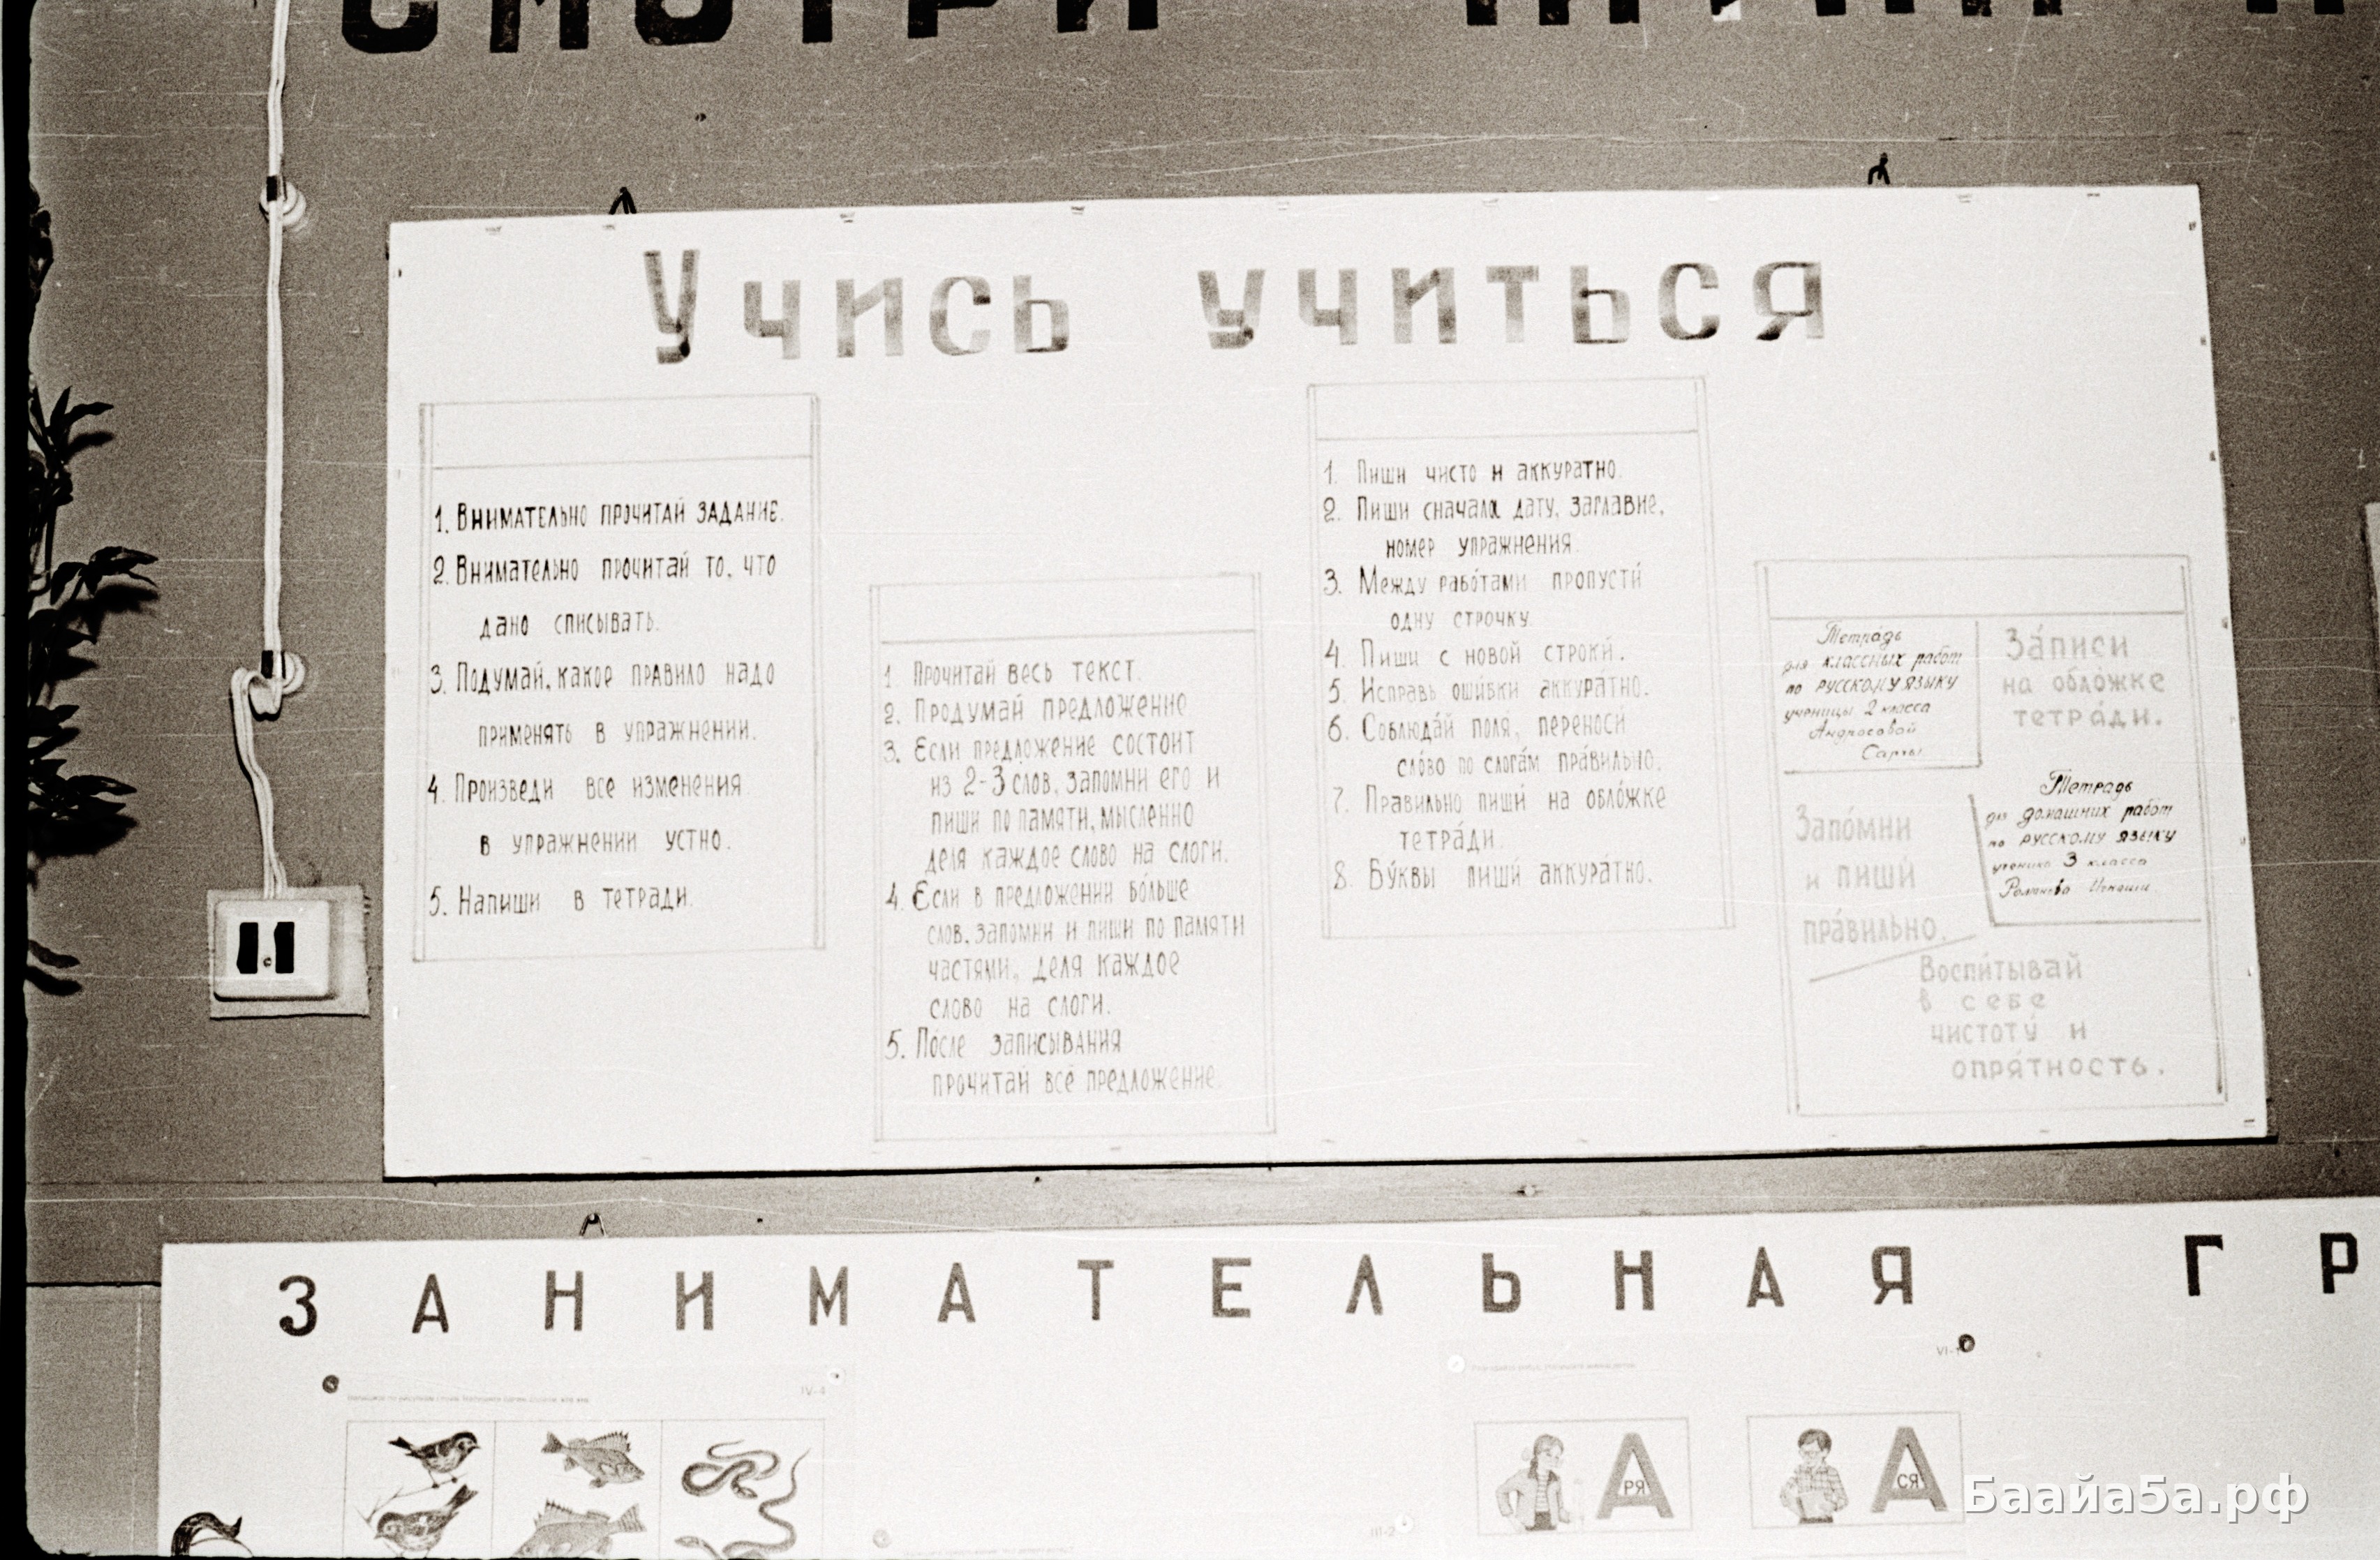 СМОТРИ
Учись учиться
1. Внимательно прочитай задание.
2. Внимательно прочитай то, что
дано списывать.
3. Подумай, какое правило надо
применять в упражнении.
4. Произведи все изменения
в упражнении устно.
5. Напиши в тетради.
1. Прочитай весь текст.
2. Продумай предложение
3. Если предложение состоит
из 2-3 слов, запомни его и
пиши по памяти, мысленно
деля каждое слово на слоги.
4. Если в предложении бо́льше
слов, запомни и пиши по памяти
частями, деля каждое
слово на слоги.
5. После записывания
прочитай всё предложение.
1. Пиши чисто и аккуратно.
2. Пиши сначала дату, заглавие,
номер упражнения.
3. Между рабо́тами пропусти́
одну строчку.
4. Пиши с новой строки́.
5. Исправь оши́бки аккура́тно.
6. Соблюда́й поля́, переноси́
сло́во по слога́м пра́вильно.
7. Правильно пиши́ на обло́жке
тетра́ди.
8. Бу́квы пиши́ аккура́тно.
Тетрадь
для классных работ
по русскому языку
ученицы 2 класса
Андросовой
Сарты
За́писи
на обло́жке
тетра́ди.
Запо́мни
и пиши́
пра́вильно.
Тетрадь
для домашних работ
по русскому языку
ученика 3 класса
Романова
Воспи́тывай
в себе
чистоту́ и
опря́тность.
ЗАНИМАТЕЛЬНАЯ ГР
IV-4
VI-1
III-2
А
РЯ
А
СЯ
Баайа5а.рф